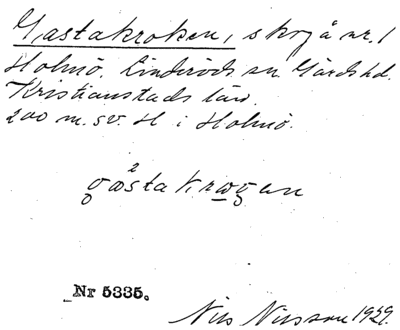 Gastakroken, skog å nr. 1
Holmö. Linderöds sn Gärds hd.
Kristianstads län.
200 m. sv. H i Holmö.
gasta krogen
Nr 5335.
Nils Nilsson 1929.